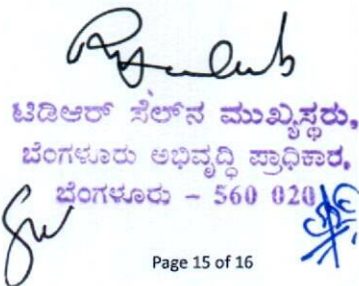 ಟಿಡಿಆರ್ ಸೆಲ್‌ನ ಮುಖ್ಯಸ್ಥರು,
ಬೆಂಗಳೂರು ಅಭಿವೃದ್ಧಿ ಪ್ರಾಧಿಕಾರ,
ಬೆಂಗಳೂರು – 560 020
Page 15 of 16